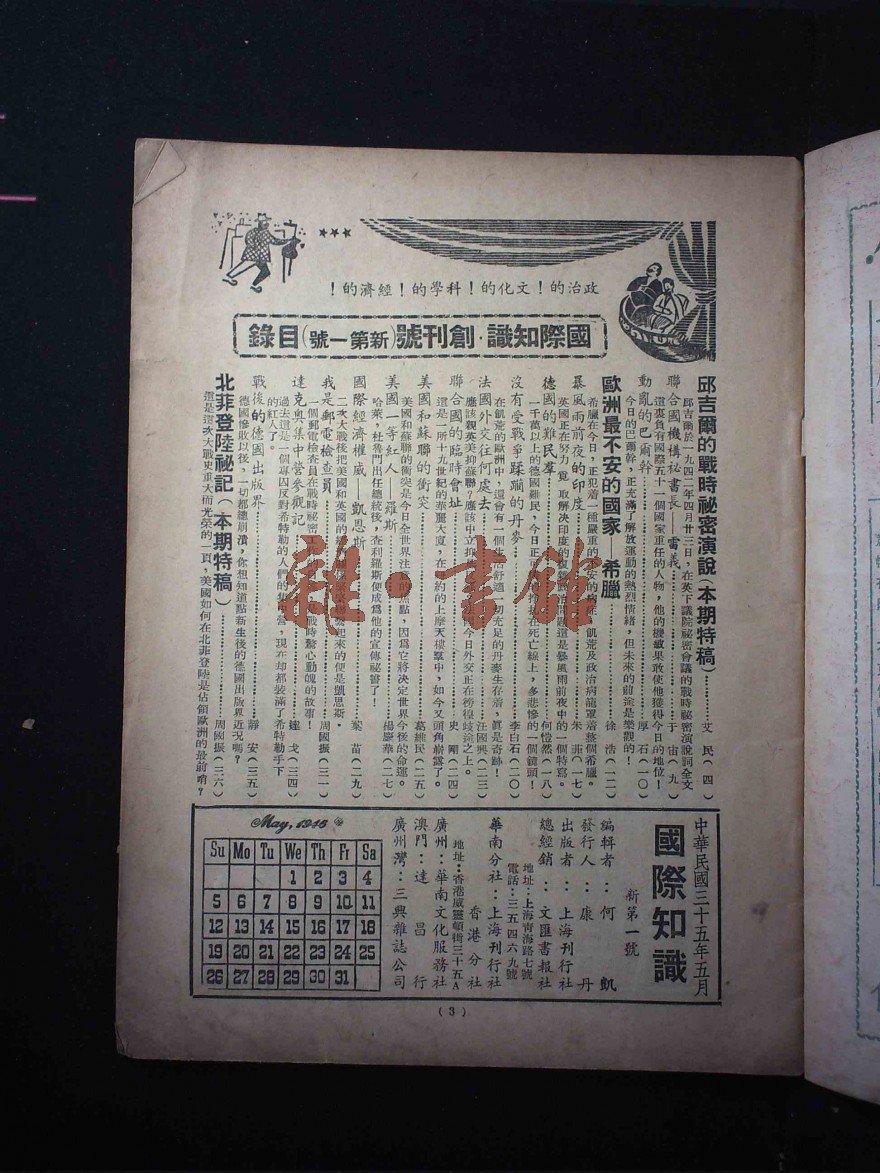 政治的！文化的！科學的！經濟的！
國際知識·創刊號(新第一號)目錄
邱吉爾的戰時祕密演說(本期特稿)………艾民(四)
邱吉爾於一九四二年四月廿三日，在英下議院祕密會議的戰時祕密演說詞全文
聯合國機構祕書長—雷義………于宙(九)
這裏負有國際五十一個國家重任的人物，他的機敏果敢使他獲得今日的地位！
動亂的巴爾幹………石(一〇)
今日的巴爾幹，正充滿了解放運動的熱烈情緒，但未來的前途是樂觀的！
歐洲最不安的國家—希臘………徐浩(一二)
希臘在今日，正犯着一種嚴重的飢荒及政治病籠罩着整個希臘。
暴風雨前夜的印度………朱菲(一七)
英國正在努力取解決印度的這是暴風雨前夜中的一個特寫。
德國的難民羣………何愷然(一八)
一千萬以上的德國難民，今日正在死亡線上，多悲慘的一個鏡頭！
沒有受戰爭蹂躪的丹麥………李白石(二〇)
在飢荒的歐洲中，還會有一個生活舒適一切充足的丹麥生存着，眞是奇跡！
法國外交往何處去………汪國興(二三)
應該親英美抑蘇聯？應該中立抑今日外交正在徬徨歧途之上。
聯合國的臨時會址………史剛(二四)
這是一所十九世紀的華麗大廈，在紐約的上摩天樓羣中，如今又頭角嶄露了。
美國和蘇聯的衝突………葛維民(二五)
美國和蘇聯的衝突是今日全世界注意的焦點，因爲它將決定世界今後的命運。
美國一等紅人—羅斯………楊慶華(二七)
哈萊，杜魯門出任總統後，查利羅斯便成爲他的宣傳祕書了！
國際經濟權威—凱恩斯………葉苗(二九)
二次大戰後把美國和英國的經濟起來的便是凱恩斯。
我是郵電檢查員………周國振(三一)
一個郵電檢查員在戰時祕密工作的戰時驚心動魄的故事！
達克奧集中營參觀記………達戈(三四)
過去這是一個專囚反對希特勒的人們的集中營，現在却都裝滿了希特勒手下
的紅人了。
戰後的德國出版界………靜安(三五)
德國慘敗以後，一切都總崩潰，你想知道點新生後的德國出版界近況嗎？
北菲登陸祕記(本期特稿)………周國振(三六)
這是這次大戰史重大而光榮的一頁，美國如何在北菲登陸是佔領歐洲的最前哨？
雜·書館
中華民國三十五年五月
國際知識
新第一號
編輯者：何凱
發行人：康丹
出版者：上海刊行社
總經銷：文匯書報社
地址：上海靑海路七號
電話：三五四六九號
華南分社：上海刊行社
香港分社
地址：香港威靈頓街三十五A
廣州：華南文化服務社
澳門：達昌行
廣州灣：三興雜誌公司
May, 1946
Su Mo Tu We Th Fr Sa
1 2 3 4
5 6 7 8 9 10 11
12 13 14 15 16 17 18
19 20 21 22 23 24 25
26 27 28 29 30 31
(3)